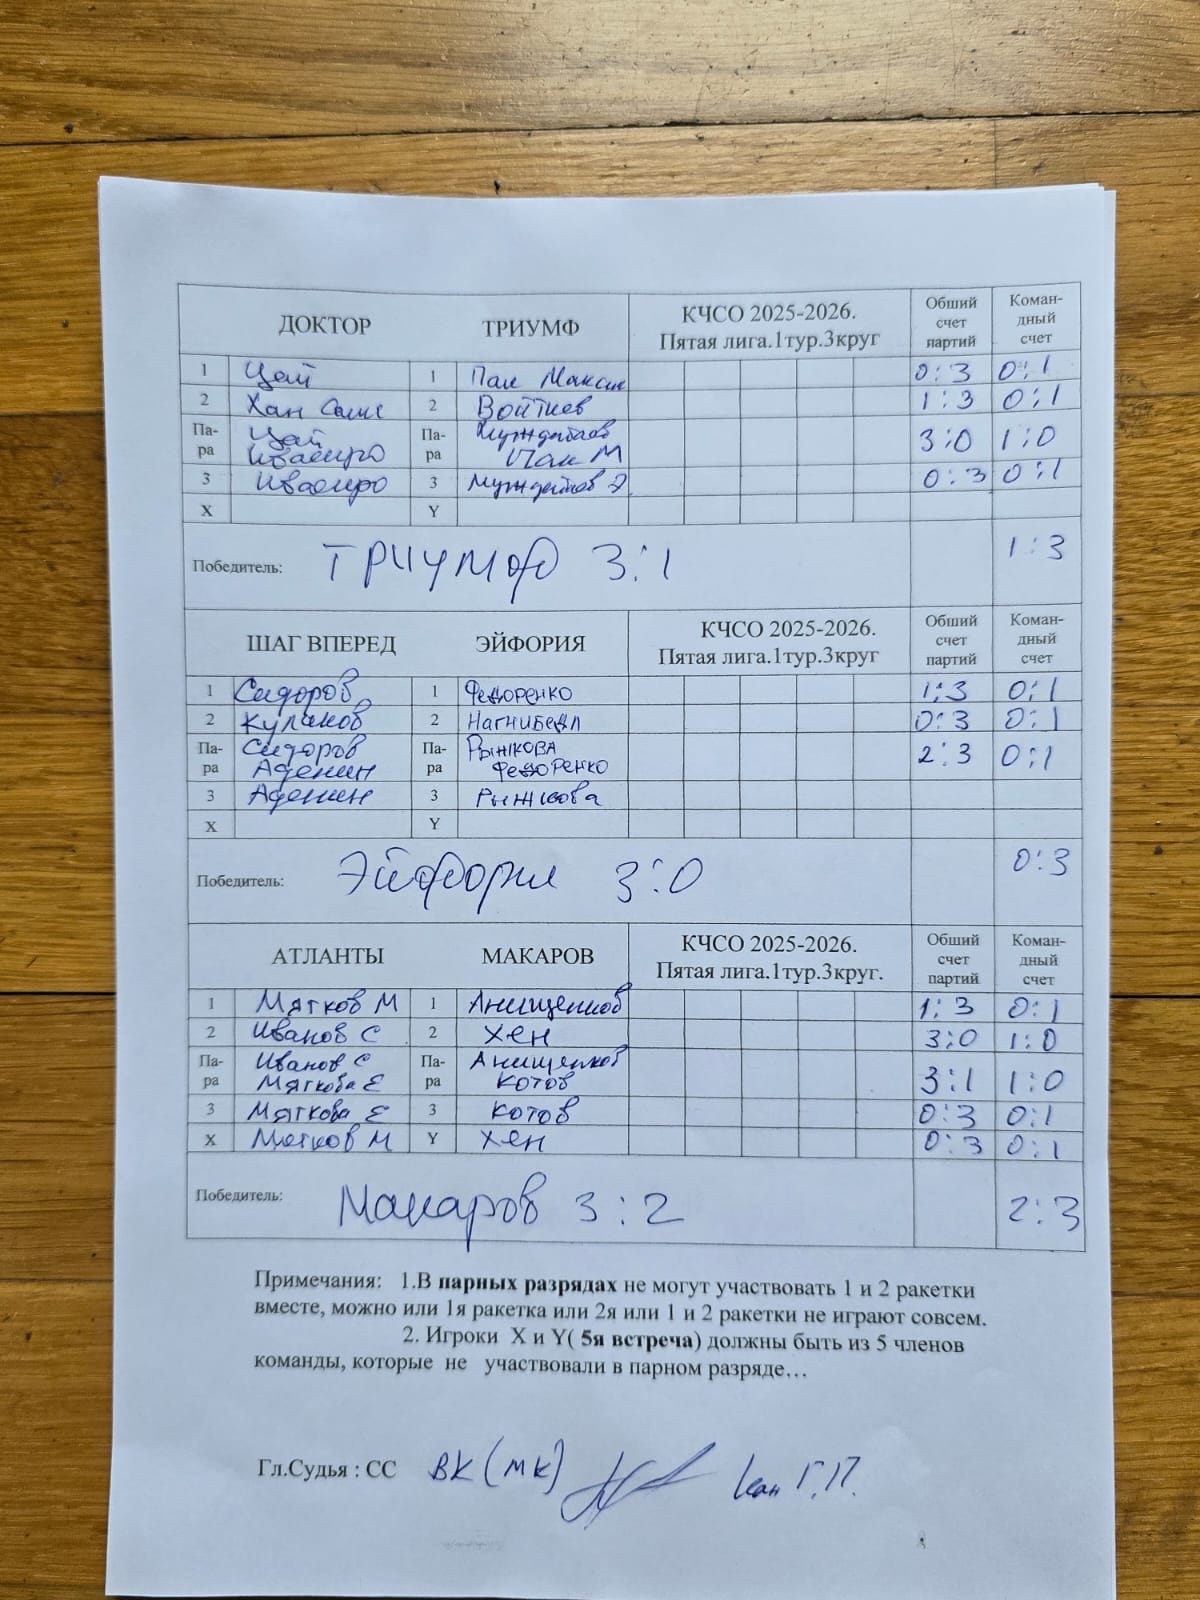 ДОКТОР ТРИУМФ КЧСО 2025-2026. Пятая лига.1тур.3круг Общий счет партий Коман-дный счет
1 Цой 1 Пак Максим 0:3 0:1
2 Хан 2 Войтиев 1:3 0:1
Па-ра Цой Па-ра 3:0 1:0
Пак М
3 3 0:3 0:1
X Y
Победитель: ТРИУМФ 3:1 1:3
ШАГ ВПЕРЕД ЭЙФОРИЯ КЧСО 2025-2026. Пятая лига.1тур.3круг Общий счет партий Коман-дный счет
1 Сидоров 1 Федоренко 1:3 0:1
2 Кулаков 2 Нагнибеда 0:3 0:1
Па-ра Сидоров Па-ра Рыжкова 2:3 0:1
Аденин Федоренко
3 Аденин 3 Рыжкова
X Y
Победитель: Эйфория 3:0 0:3
АТЛАНТЫ МАКАРОВ КЧСО 2025-2026. Пятая лига.1тур.3круг. Общий счет партий Коман-дный счет
1 Мягков М 1 Анищенков 1:3 0:1
2 Иванов С 2 Хен 3:0 1:0
Па-ра Иванов С Па-ра Анищенков 3:1 1:0
Мягкова Е Котов
3 Мягкова Е 3 Котов 0:3 0:1
X Мягков М Y Хен 0:3 0:1
Победитель: Макаров 3:2 2:3
Примечания: 1.В парных разрядах не могут участвовать 1 и 2 ракетки
вместе, можно или 1я ракетка или 2я или 1 и 2 ракетки не играют совсем.
2. Игроки X и Y( 5я встреча) должны быть из 5 членов
команды, которые не участвовали в парном разряде…
Гл.Судья : СС ВК (МК) Кан Г.П.